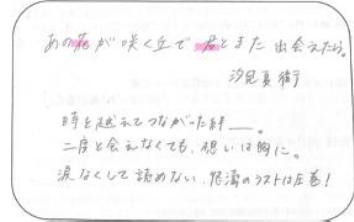 あの花が咲く丘で 君とまた 出会えたら。
汐見夏衛
時を越えてつながった絆__。
二度と会えなくても、想いは胸に。
涙なくして読めない、怒濤のラストは圧巻!